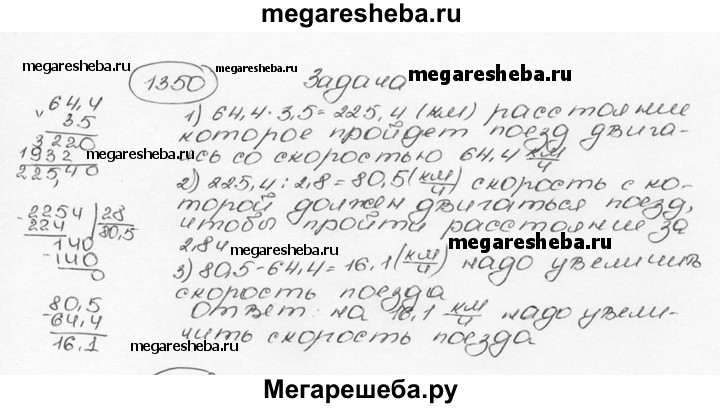 megaresheba.ru
megaresheba.ru
1350
Задача
megaresheba.ru
64,4
3.5
3220
1932
megaresheba.ru
22540
1) 64,4·3,5=225,4 (км) расстояние
которое пройдет поезд двига-
ясь со скоростью 64,4 км/ч
2) 225,4:2,8=80,5(км/ч) скорость с ко-
торой должен двигаться поезд,
чтобы пройти расстояние за
2,8ч
-2254 |28
224 80,5
140
-140
0
megaresheba.ru
megaresheba.ru
3) 80,5-64,4=16,1(км/ч) надо увеличить
скорость поезда
Ответ: на 16,1 км/ч надо увели-
чить скорость поезда
80,5
-64,4
16,1
megaresheba.ru
Мегарешеба.ру